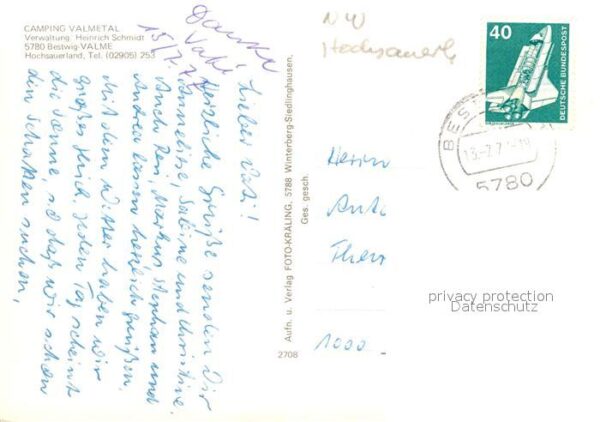 CAMPING VALMETAL
Verwaltung: Heinrich Schmidt
5780 Bestwig-VALME
Hochsauerland, Tel. (02905) 253
Danke
15/7.77
NW
Hochsauerl.
Lieber Vati!
Herzliche Grüße senden Dir
Annelise, Sabine und Christine.
Auch Markus, Stephan und
Andrea lassen herzlich grüßen.
Mit dem Wetter haben wir
großes Glück. Jeden Tag scheint
die Sonne, so daß wir schon
den Schatten suchen.
Aufn. u. Verlag FOTO-KRÄLING, 5788 Winterberg-Siedlinghausen,
Ges. gesch.
2708
40
DEUTSCHE BUNDESPOST
BES
5780
Herrn
1000
privacy protection
Datenschutz